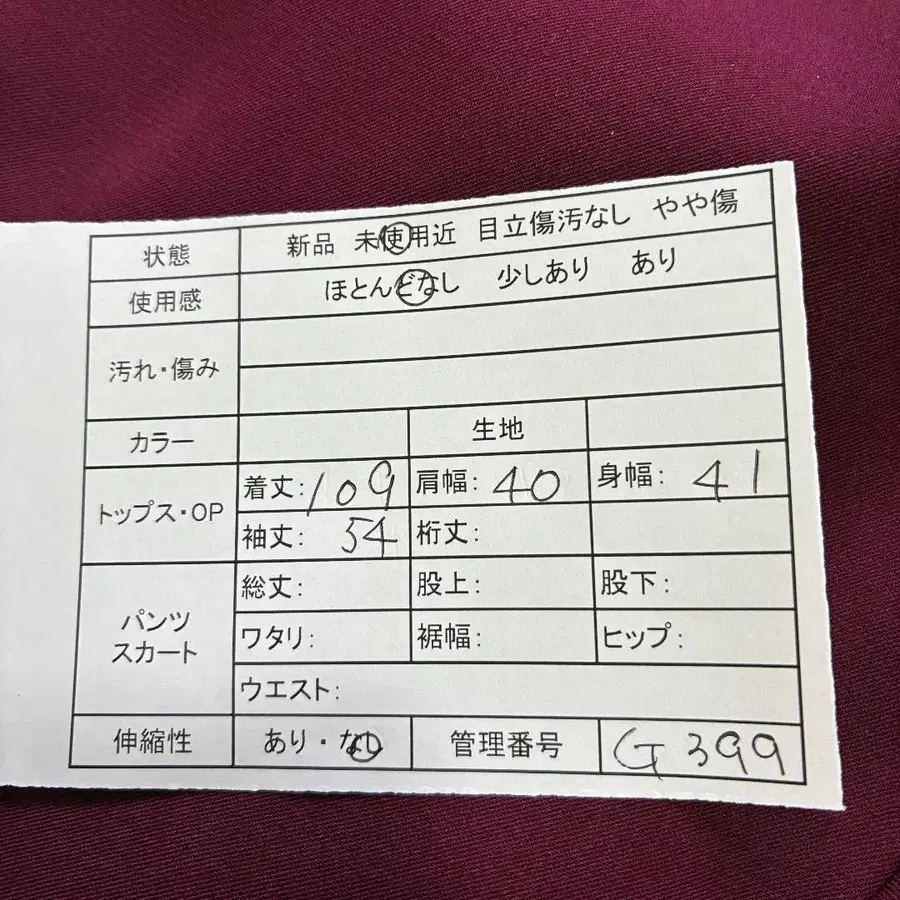 状態 新品 未使用近 目立傷汚なし やや傷
使用感 ほとんどなし 少しあり あり
汚れ・傷み
カラー 生地
トップス・OP 着丈: 109 肩幅: 40 身幅: 41
袖丈: 54 裄丈:
パンツ スカート 総丈: 股上: 股下:
ワタリ: 裾幅: ヒップ:
ウエスト:
伸縮性 あり・なし 管理番号 G399